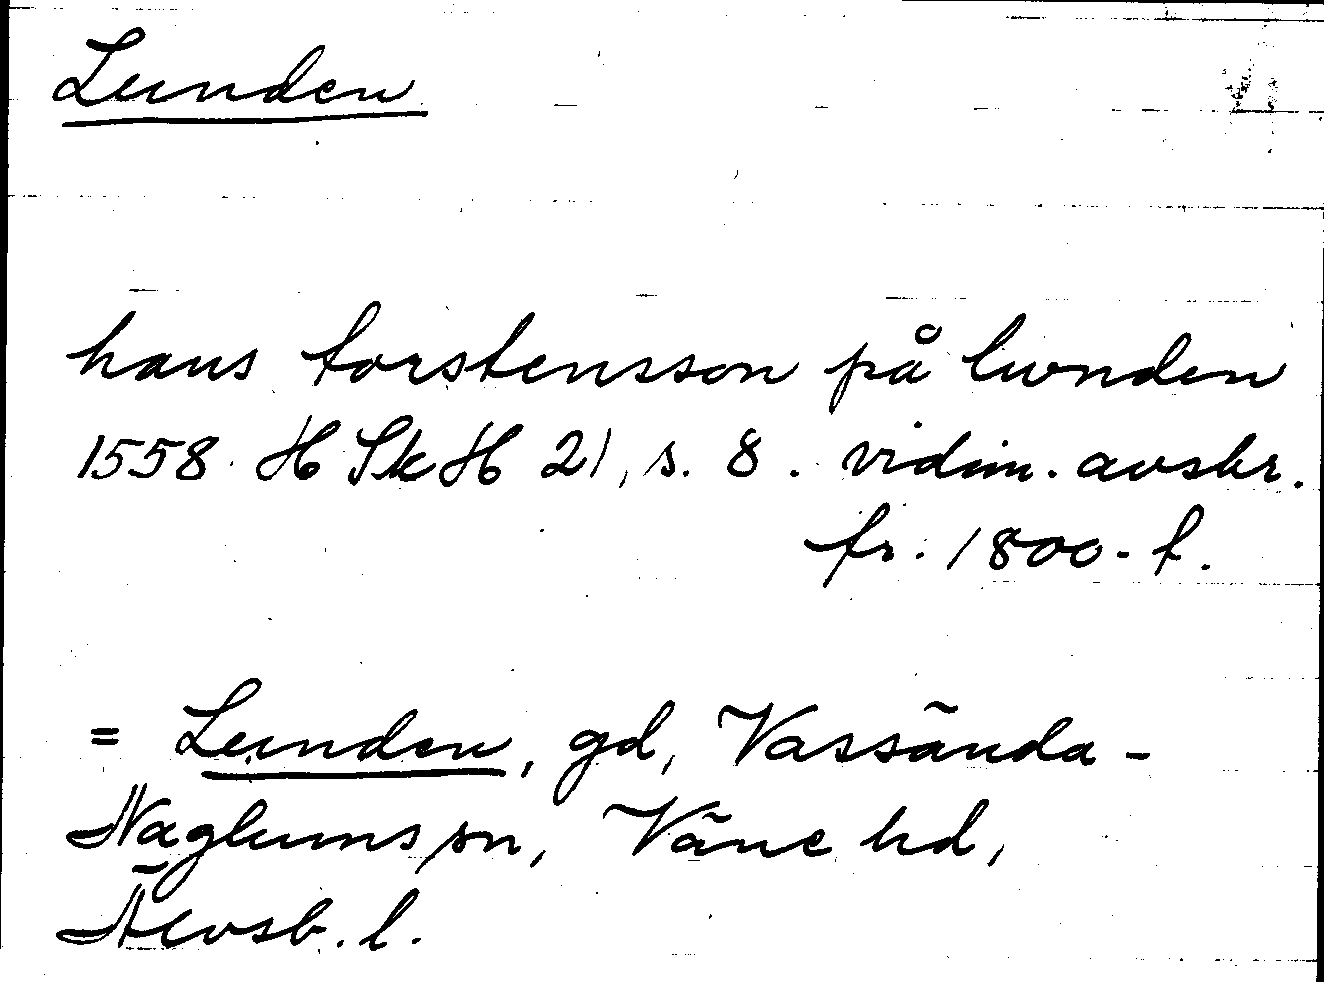 Lunden
hans torstensson på lwnden
1558 H Sk H 21, s. 8. vidim. avskr.
fr. 1800-t.
= Lunden, gd, Vassända-
Naglums sn, Väne hd,
Älvsb. l.